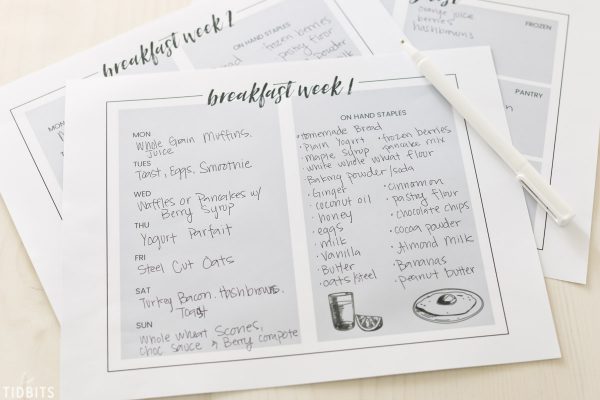 breakfast week 2
ON HAND STAPLES
frozen berries
pastry flour
powder
orange juice
berries
hashbrowns
FROZEN
PANTRY
breakfast week 1
MON
Whole Grain Muffins,
Juice
TUES
Toast, Eggs, Smoothie
WED
Waffles or Pancakes w/
Berry Syrup
THU
Yogurt Parfait
FRI
Steel Cut Oats
SAT
Turkey Bacon, Hashbrowns,
Toast
SUN
Whole Wheat Scones,
Choc Sauce & Berry Compote
ON HAND STAPLES
·Homemade Bread
·Plain Yogurt ·frozen berries
·maple syrup ·pancake mix
·white whole wheat flour
·Baking powder/soda
·Ginger ·cinnamon
·coconut oil ·pastry flour
·honey ·chocolate chips
·eggs ·cocoa powder
·milk ·Almond Milk
·Vanilla ·Bananas
·Butter ·peanut butter
·oats/steel
TIDBITS